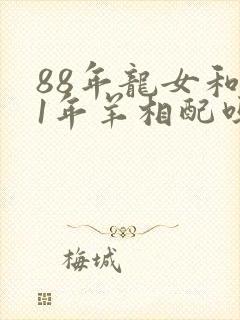 88年龍女和
1年羊相配
梅城